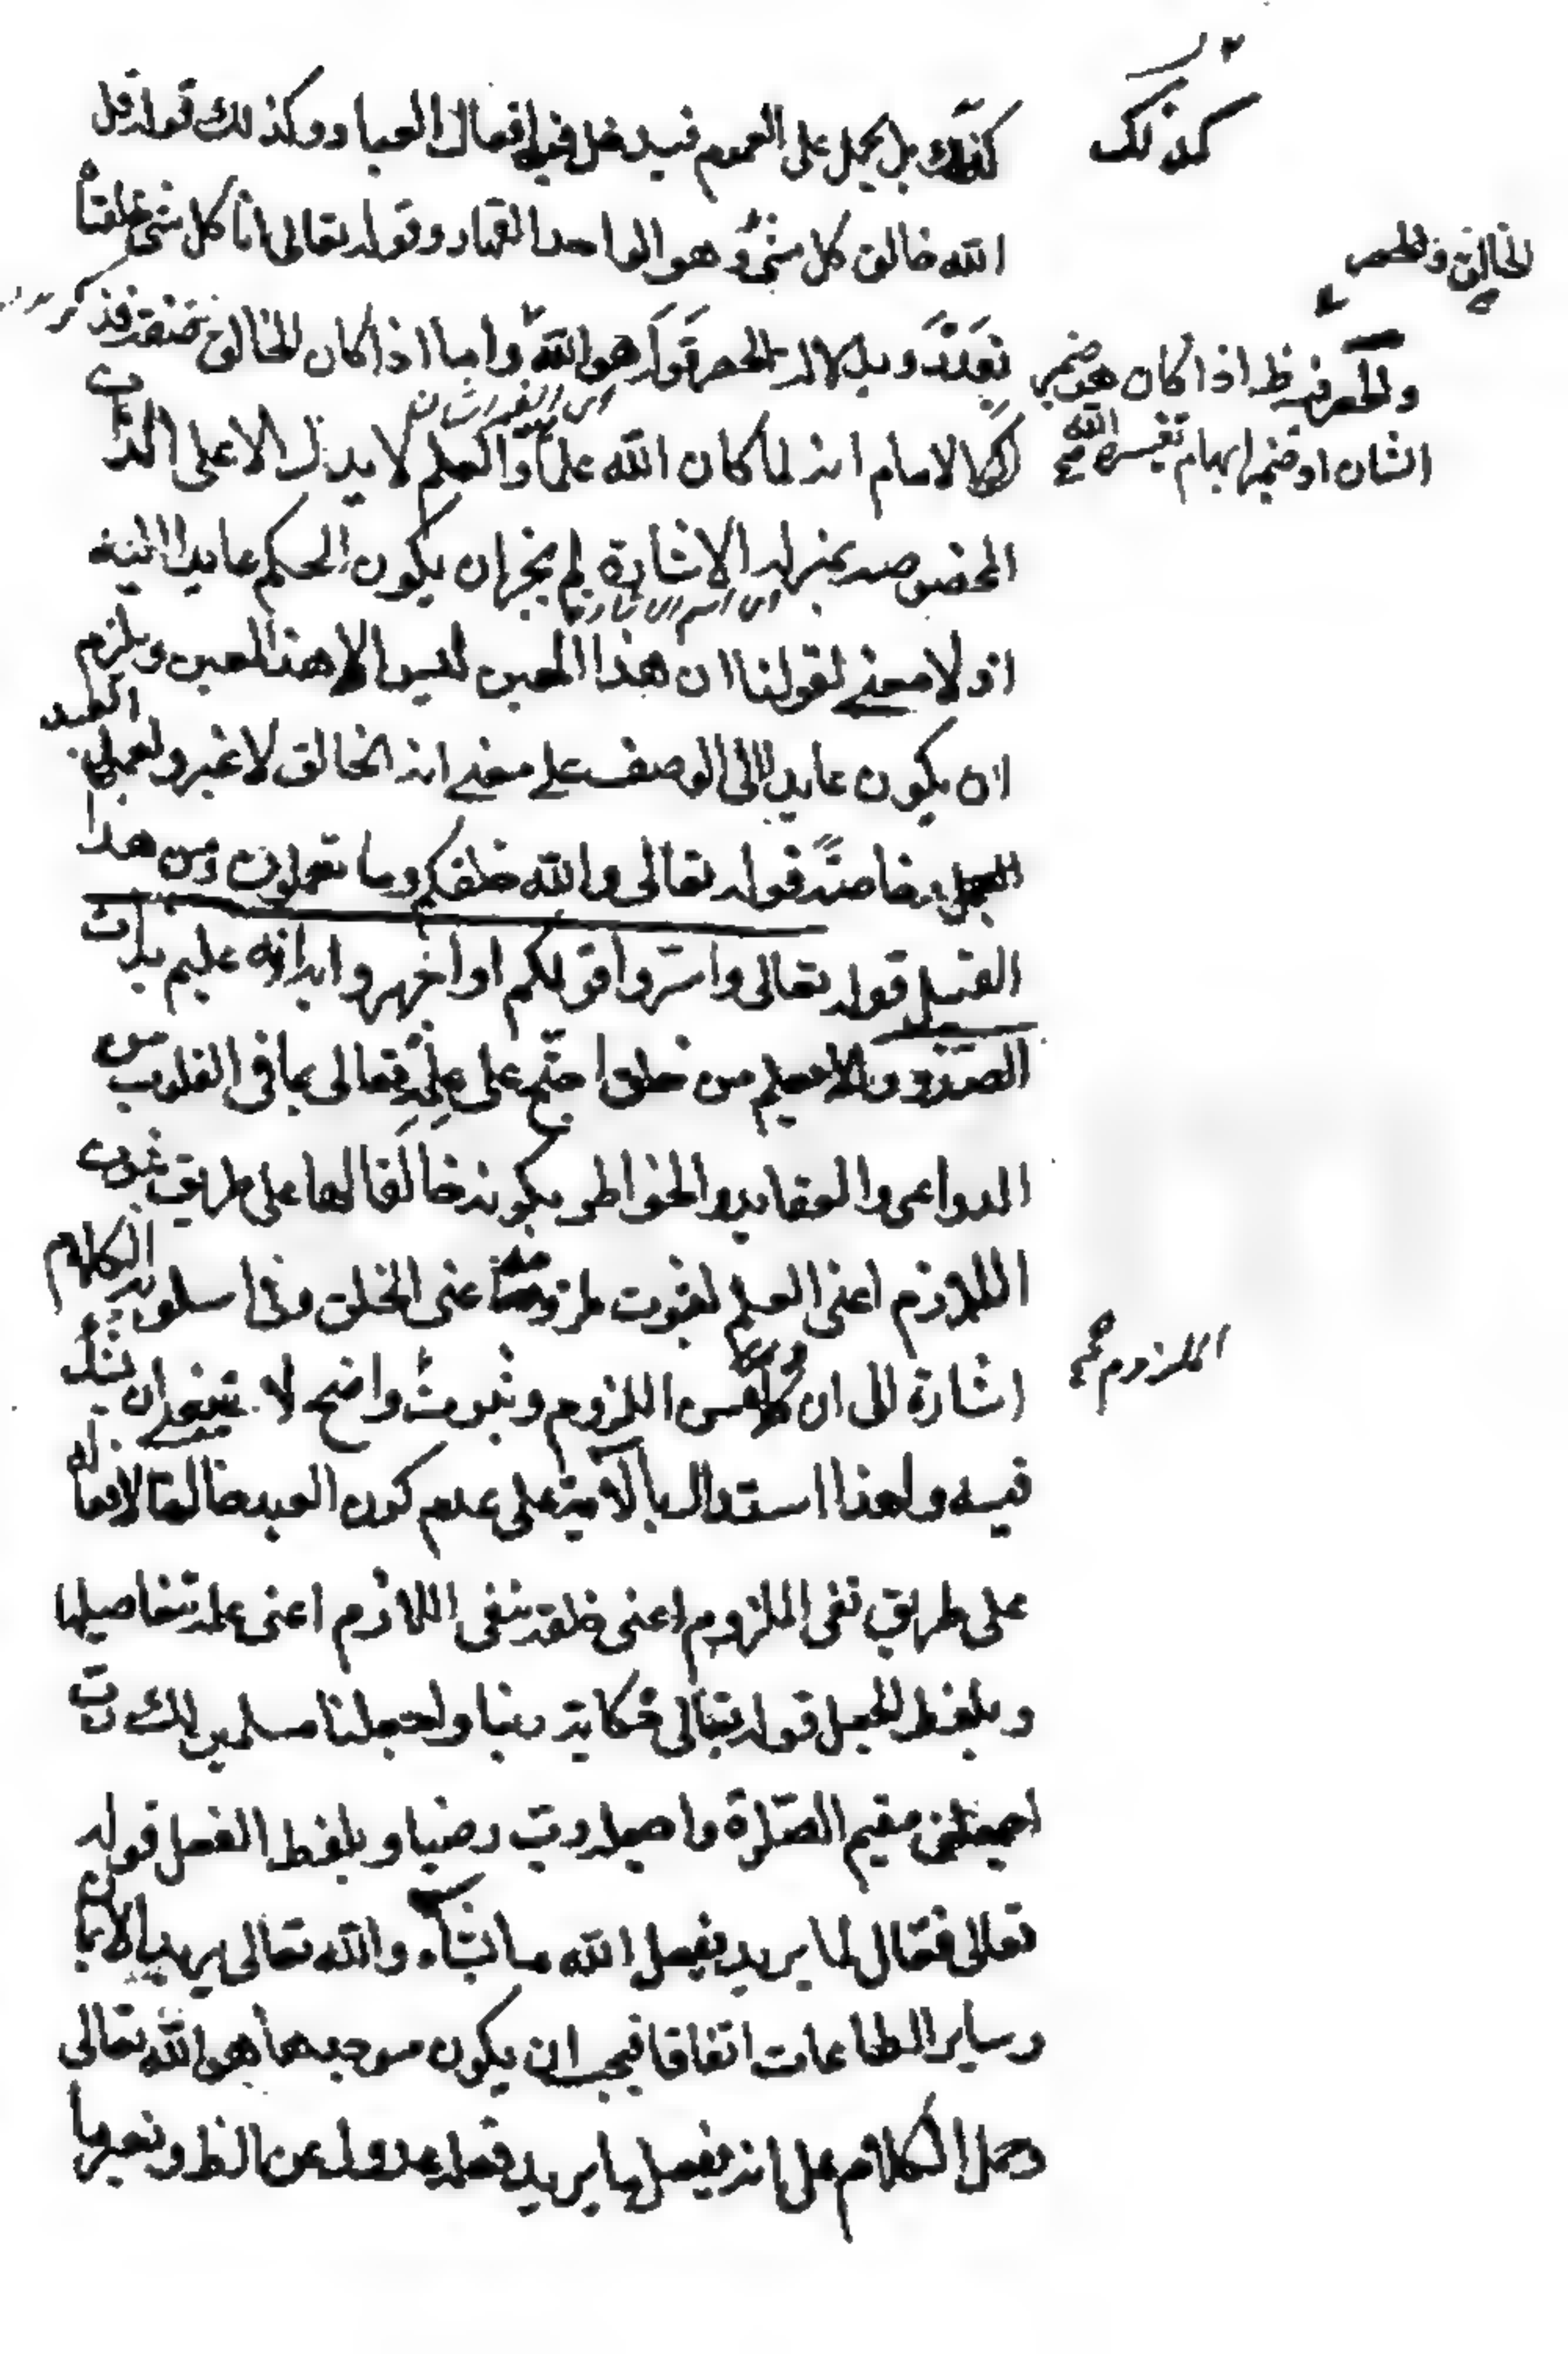 كذلك بل يحمل على العموم فيدخل فيه افعال العباد وكذلك قوله قل
الله خالق كل شئ وهو الواحد القهار وقوله تعالى انا كل شئ خلقناه
بقدر و بدلالة الحصر قوله هو الله واما اذا كان الخالق صفته فذكر
الامام انه لما كان الله علما والعلم لا يدل الا على الذات
اى اسم الاشارة
المخصوصه بمنزلة الاشارة لم يجز ان يكون الحكم عايدا اليه
اذ لا معنى لقولنا ان هذا المعين ليس الا هذا المعين ويلزم
ان يكون عايدا الى الوصف على معنى انه الخالق لا غير ولعملى العبد
العمل وخاصة قوله تعالى والله خلقكم وما تعملون ومن هذا
القبيل قوله تعالى واسروا قولكم او اجهروا به انه عليم بذات
الصدور الا يعلم من خلق احتج على علمه تعالى بما فى القلوب من
الدواعى والعقايد والخواطر بكونه خالقا لها على طريق ثبوت
اللازم اعنى العلم لثبوت ملزومه اعنى الخلق وفى اسلوب الكلام
اشارة الى ان كلا من اللزوم وثبوت واضح لا ينبغى ان يشك
فيه ولهذا استدل بالآية على عدم كون العبد خالقا لافعاله
على طريق نفى الملزوم اعنى خلقه بنفى اللازم اعنى علمه بتفاصيلها
وبلفظ الجعل قوله تعالى حكاية ربنا واجعلنا مسلمين لك رب
اجعلنى مقيم الصلوة واجعله رب رضيا وبلفظ الفعل قوله
تعالى فعال لما يريد يفعل الله ما يشاء والله تعالى يريد الايمان
وساير الطاعات اتفاقا فيجب ان يكون موجدها هو الله تعالى
وحمل الكلام على انه يفعل ما يريد فعله عدول عن الظ
كذلك
الخالق والحصر
والحصر فيه ظ اذا كان هو ضمير
الشان او ضمير ابهام تفسيره الله صح
الملزوم صح